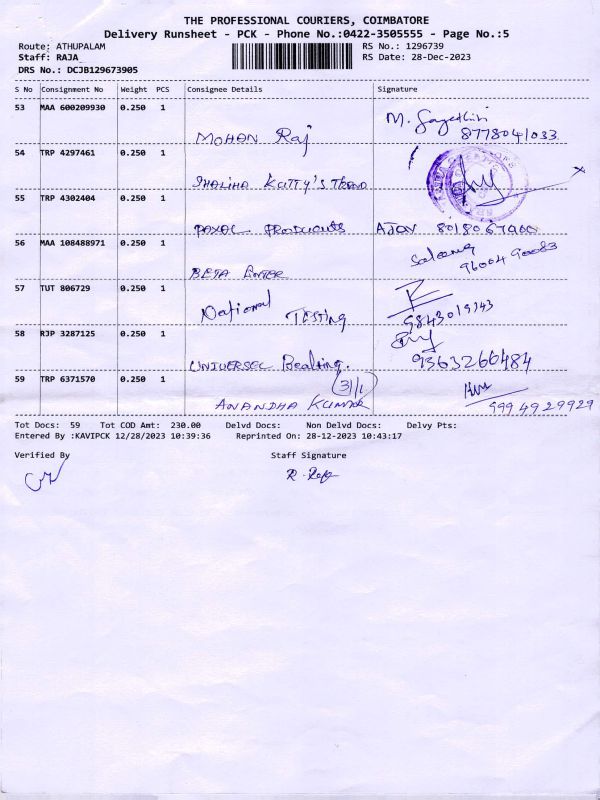 THE PROFESSIONAL COURIERS, COIMBATORE
Delivery Runsheet - PCK - Phone No.:0422-3505555 - Page No.:5
Route: ATHUPALAM RS No.: 1296739
Staff: RAJA RS Date: 28-Dec-2023
DRS No.: DCJB129673905
S No Consignment No Weight PCS Consignee Details Signature
53 MAA 600209930 0.250 1
MOHAN Raj M. Gayathiri
8778041033
54 TRP 4297461 0.250 1
SHALIHA KUTTY'S TREND
55 TRP 4302404 0.250 1
PAYAL PRODUCATS AJAY 8018067900
56 MAA 108488971 0.250 1
BETA 9600490083
57 TUT 806729 0.250 1
National TESTING 9843019343
58 RJP 3287125 0.250 1
UNIVERSEL Bealting. 9363266484
59 TRP 6371570 0.250 1
(31/1)
ANANDHA KUMAR 9994929929
Tot Docs: 59 Tot COD Amt: 230.00 Delvd Docs: Non Delvd Docs: Delvy Pts:
Entered By :KAVIPCK 12/28/2023 10:39:36 Reprinted On: 28-12-2023 10:43:17
Verified By Staff Signature
R. Raja